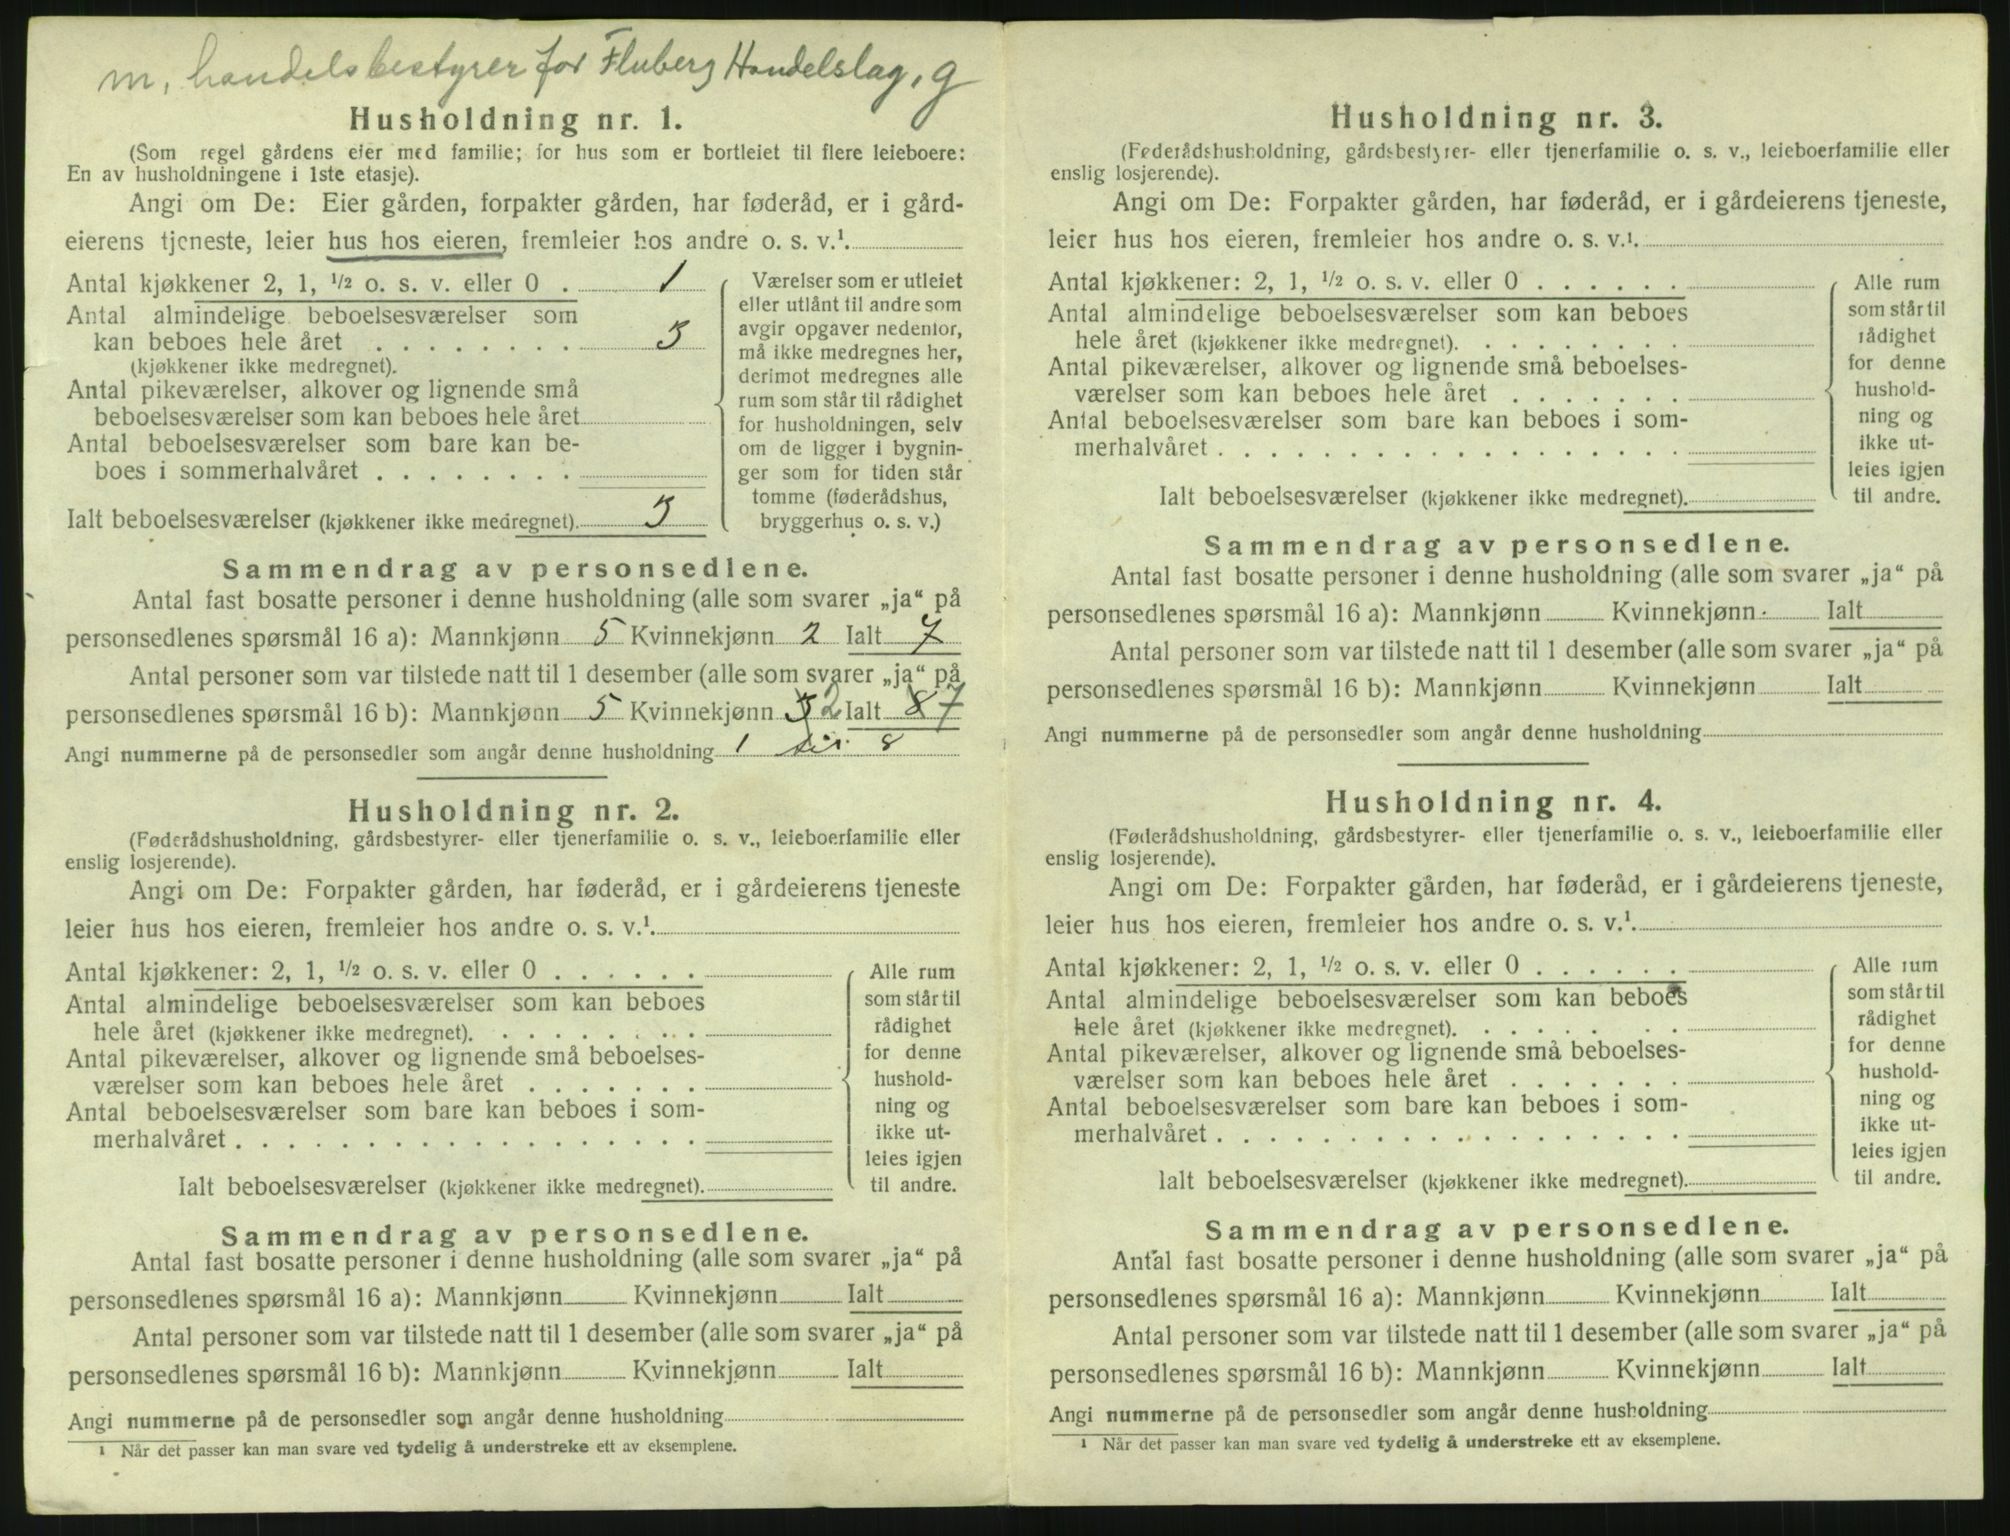 m, handelsbestyrer for Fluberg Handelslag, g
Husholdning nr. 1.
(Som regel gårdens eier med familie; for hus som er bortleiet til flere leieboere:
En av husholdningene i 1ste etasje).
Angi om De: Eier gården, forpakter gården, har føderåd, er i gård-
eierens tjeneste, leier hus hos eieren, fremleier hos andre o. s. v.¹.
Antal kjøkkener 2, 1, ½ o. s. v. eller 0 . 1
Antal almindelige beboelsesværelser som
kan beboes hele året . . . . . . . . 3
(kjøkkener ikke medregnet).
Antal pikeværelser, alkover og lignende små
beboelsesværelser som kan beboes hele året
Antal beboelsesværelser som bare kan be-
boes i sommerhalvåret . . . . . . . .
Ialt beboelsesværelser (kjøkkener ikke medregnet). 3
Værelser som er utleiet
eller utlånt til andre som
avgir opgaver nedenfor,
må ikke medregnes her,
derimot medregnes alle
rum som står til rådighet
for husholdningen, selv
om de ligger i bygnin-
ger som for tiden står
tomme (føderådshus,
bryggerhus o. s. v.)
Sammendrag av personsedlene.
Antal fast bosatte personer i denne husholdning (alle som svarer „ja“ på
personsedlenes spørsmål 16 a): Mannkjønn 5 Kvinnekjønn 2 Ialt 7
Antal personer som var tilstede natt til 1 desember (alle som svarer „ja“ på
personsedlenes spørsmål 16 b): Mannkjønn 5 Kvinnekjønn 3 2 Ialt 8 7
Angi nummerne på de personsedler som angår denne husholdning 1 til 8
Husholdning nr. 2.
(Føderådshusholdning, gårdsbestyrer- eller tjenerfamilie o. s. v., leieboerfamilie eller
enslig losjerende).
Angi om De: Forpakter gården, har føderåd, er i gårdeierens tjeneste
leier hus hos eieren, fremleier hos andre o. s. v.¹.
Antal kjøkkener: 2, 1, ½ o. s. v. eller 0 . . . . . .
Antal almindelige beboelsesværelser som kan beboes
hele året (kjøkkener ikke medregnet). . . . . . . . .
Antal pikeværelser, alkover og lignende små beboelses-
værelser som kan beboes hele året . . . . . . .
Antal beboelsesværelser som bare kan beboes i som-
merhalvåret . . . . . . . . . . . . . . . . . .
Ialt beboelsesværelser (kjøkkener ikke medregnet).
Alle rum
som står til
rådighet
for denne
hushold-
ning og
ikke ut-
leies igjen
til andre.
Sammendrag av personsedlene.
Antal fast bosatte personer i denne husholdning (alle som svarer „ja“ på
personsedlenes spørsmål 16 a): Mannkjønn Kvinnekjønn Ialt
Antal personer som var tilstede natt til 1 desember (alle som svarer „ja“ på
personsedlenes spørsmål 16 b): Mannkjønn Kvinnekjønn Ialt
Angi nummerne på de personsedler som angår denne husholdning
¹ Når det passer kan man svare ved tydelig å understreke ett av eksemplene.
Husholdning nr. 3.
(Føderådshusholdning, gårdsbestyrer- eller tjenerfamilie o. s. v., leieboerfamilie eller
enslig losjerende).
Angi om De: Forpakter gården, har føderåd, er i gårdeierens tjeneste,
leier hus hos eieren, fremleier hos andre o. s. v.¹.
Antal kjøkkener: 2, 1, ½ o. s. v. eller 0 . . . . . .
Antal almindelige beboelsesværelser som kan beboes
hele året (kjøkkener ikke medregnet). . . . . . . . .
Antal pikeværelser, alkover og lignende små beboelses-
værelser som kan beboes hele året . . . . . . .
Antal beboelsesværelser som bare kan beboes i som-
merhalvåret . . . . . . . . . . . . . . . . . .
Ialt beboelsesværelser (kjøkkener ikke medregnet).
Alle rum
som står til
rådighet
for denne
hushold-
ning og
ikke ut-
leies igjen
til andre.
Sammendrag av personsedlene.
Antal fast bosatte personer i denne husholdning (alle som svarer „ja“ på
personsedlenes spørsmål 16 a): Mannkjønn Kvinnekjønn Ialt
Antal personer som var tilstede natt til 1 desember (alle som svarer „ja“ på
personsedlenes spørsmål 16 b): Mannkjønn Kvinnekjønn Ialt
Angi nummerne på de personsedler som angår denne husholdning
Husholdning nr. 4.
(Føderådshusholdning, gårdsbestyrer- eller tjenerfamilie o. s. v., leieboerfamilie eller
enslig losjerende).
Angi om De: Forpakter gården, har føderåd, er i gårdeierens tjeneste,
leier hus hos eieren, fremleier hos andre o. s. v.¹.
Antal kjøkkener: 2, 1, ½ o. s. v. eller 0 . . . . . .
Antal almindelige beboelsesværelser som kan beboes
hele året (kjøkkener ikke medregnet). . . . . . . .
Antal pikeværelser, alkover og lignende små beboelses-
værelser som kan beboes hele året . . . . . . .
Antal beboelsesværelser som bare kan beboes i som-
merhalvåret . . . . . . . . . . . . . . . . . .
Ialt beboelsesværelser (kjøkkener ikke medregnet).
Alle rum
som står til
rådighet
for denne
hushold-
ning og
ikke ut-
leies igjen
til andre.
Sammendrag av personsedlene.
Antal fast bosatte personer i denne husholdning (alle som svarer „ja“ på
personsedlenes spørsmål 16 a): Mannkjønn Kvinnekjønn Ialt
Antal personer som var tilstede natt til 1 desember (alle som svarer „ja“ på
personsedlenes spørsmål 16 b): Mannkjønn Kvinnekjønn Ialt
Angi nummerne på de personsedler som angår denne husholdning
¹ Når det passer kan man svare ved tydelig å understreke ett av eksemplene.